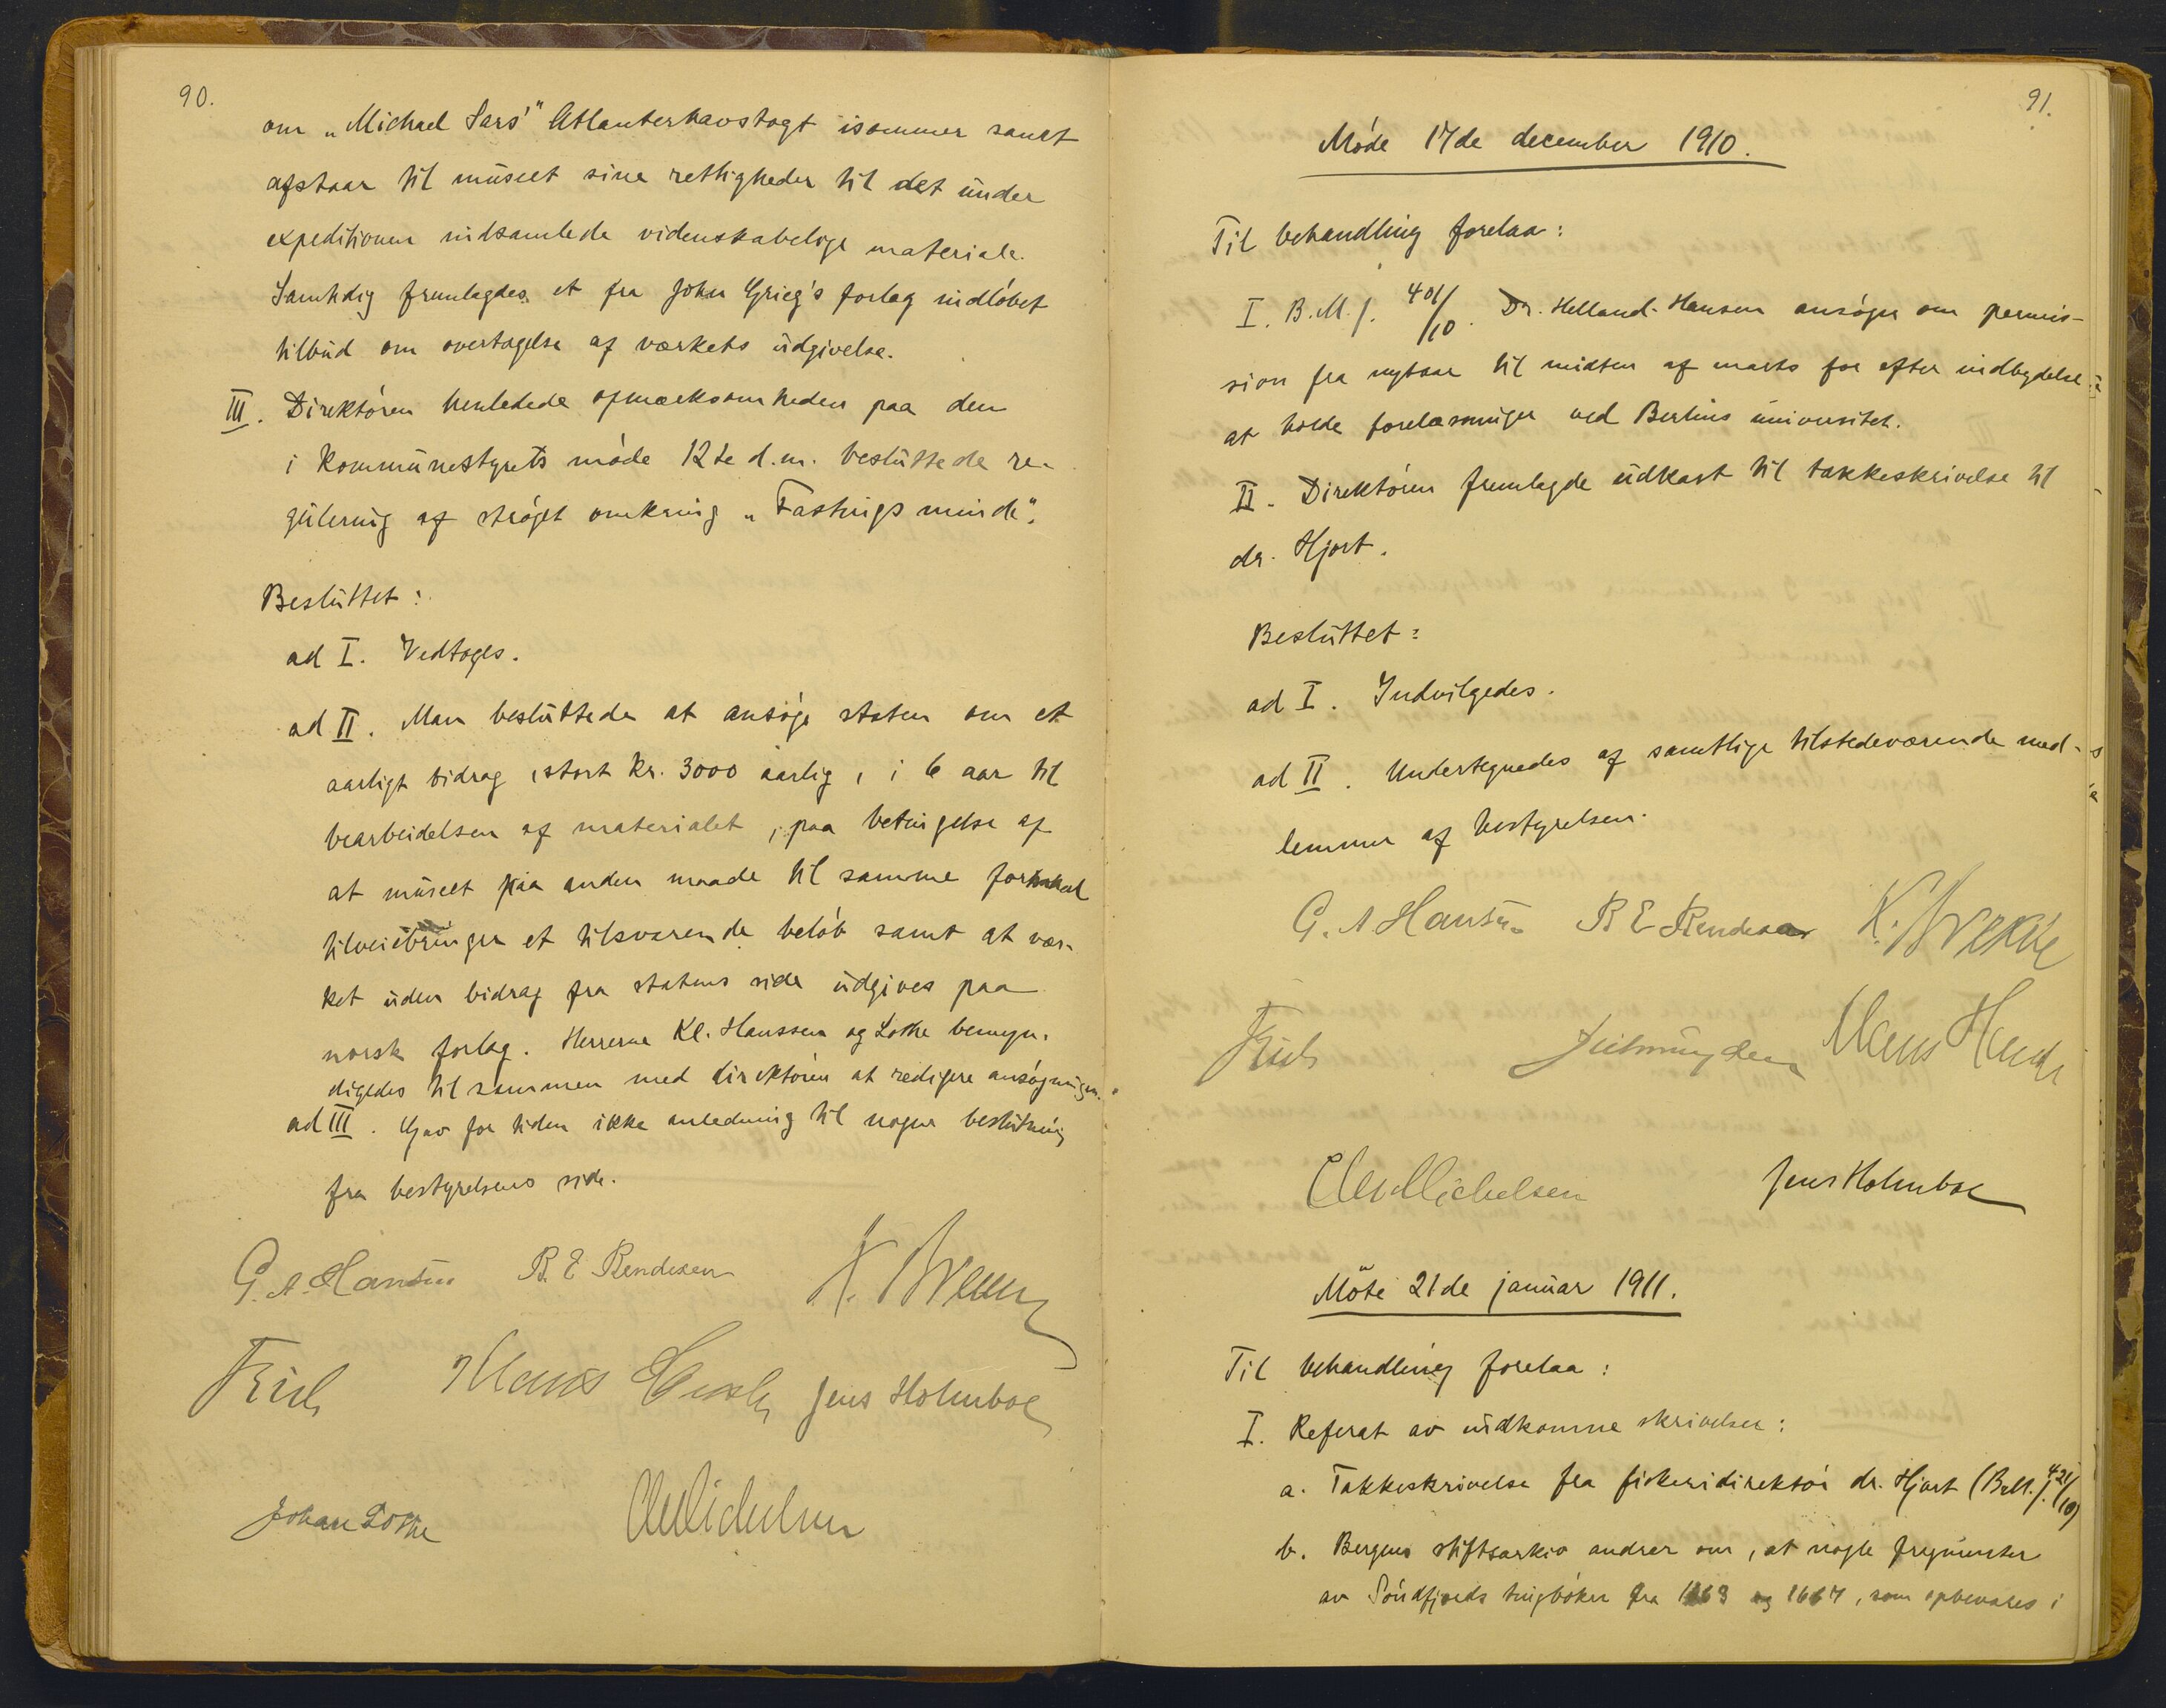 90.
om „Michael Sars'" Atlanterhavstogt isommer samt
afstaar til museet sine rettigheder til det under
expeditionen indsamlede videnskabelige materiale.
Samtidig fremlagdes et fra John Grieg's forlag indløbet
tilbud om overtagelse af værkets udgivelse.
III. Direktøren henledede opmærksomheden paa den
i kommunestyrets møde 12te d.m. besluttede re-
gulering af strøget omkring „Fastings minde".
Besluttet:
ad I. Vedtoges.
ad II. Man besluttede at ansøge staten om et
aarligt bidrag, stort kr. 3000 aarlig, i 6 aar til
bearbeidelsen af materialet, paa betingelse af
at museet paa anden maade til samme formaal
tilveiebringer et tilsvarende beløb samt at vær-
ket uden bidrag fra statens side udgives paa
norsk forlag. Herrerne Kl. Hanssen og Lothe bemyn-
digedes til sammen med direktøren at redigere ansøgningen.
ad III. Gav for tiden ikke anledning til nogen beslutning
fra bestyrelsens side.
G. A. Hansen B. E. Bendixen
Klaus Hanssen Jens Holmboe
Johan Lothe Chr Michelsen
91.
Møde 17de december 1910.
Til behandling forelaa:
I. B.M.J. 401/10. Dr. Helland-Hansen ansøger om permis-
sion fra nytaar til midten af marts for efter indbydelse
at holde forelæsninger ved Berlins universitet.
II. Direktøren fremlagde udkast til takkeskrivelse til
dr. Hjort.
Besluttet:
ad I. Indvilgedes.
ad II. Undertegnedes af samtlige tilstedeværende med-
lemmer af bestyrelsen.
G. A Hansen B E Bendixen
Klaus Hanssen
Chr Michelsen Jens Holmboe
Möte 21de januar 1911.
Til behandling forelaa:
I. Referat av indkomne skrivelser:
a. Takkeskrivelse fra fiskeridirektör dr. Hjort (B.M.J. 421/10)
b. Bergens stiftsarkiv andrar om, at nogle fragmenter
av Söndfjords tingböker fra 1663 og 1667, som opbevares i